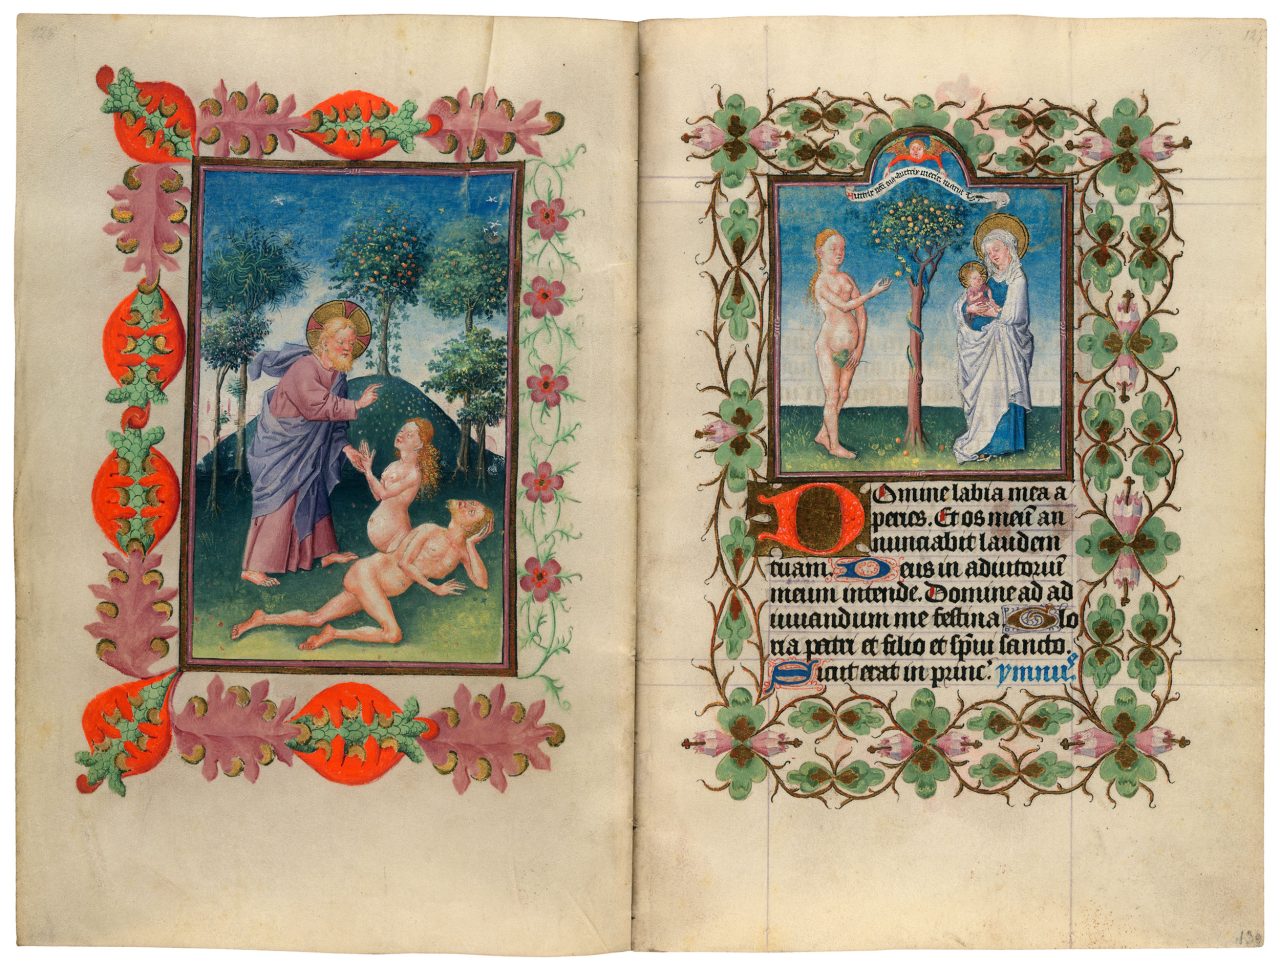 Domine labia mea a
peries. Et os meū an
nunciabit laudem
tuam. Deus in adiutoriū
meum intende. Domine ad ad
iuvandum me festina Glo
ria patri et filio et sp̄iu sancto.
Sicut erat in princ.